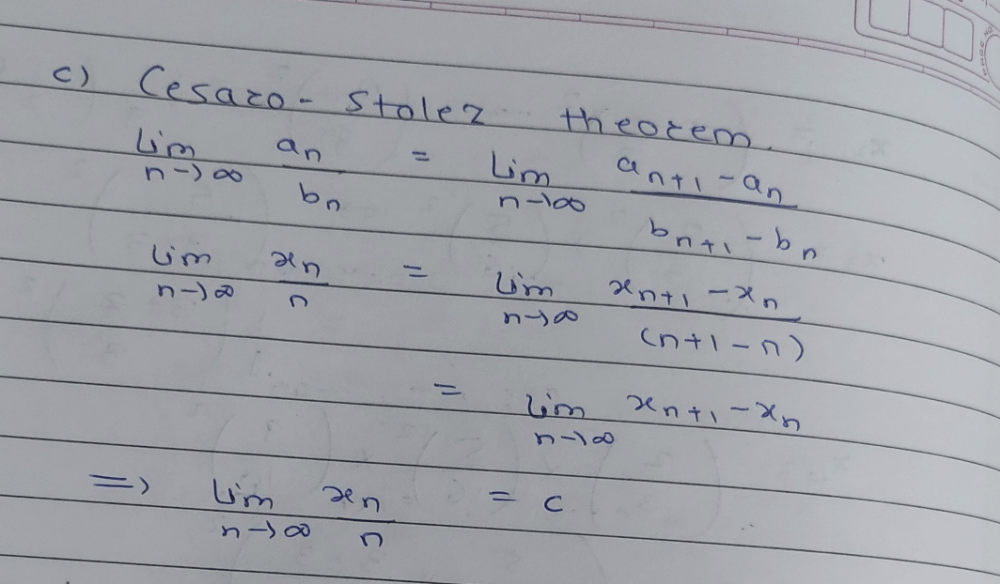 c) Cesaro - Stolez theorem.
lim n→∞ an / bn = lim n→∞ an+1 - an / bn+1 - bn
lim n→∞ xn / n = lim n→∞ xn+1 - xn / (n+1 - n)
= lim n→∞ xn+1 - xn
⇒ lim n→∞ xn / n = c